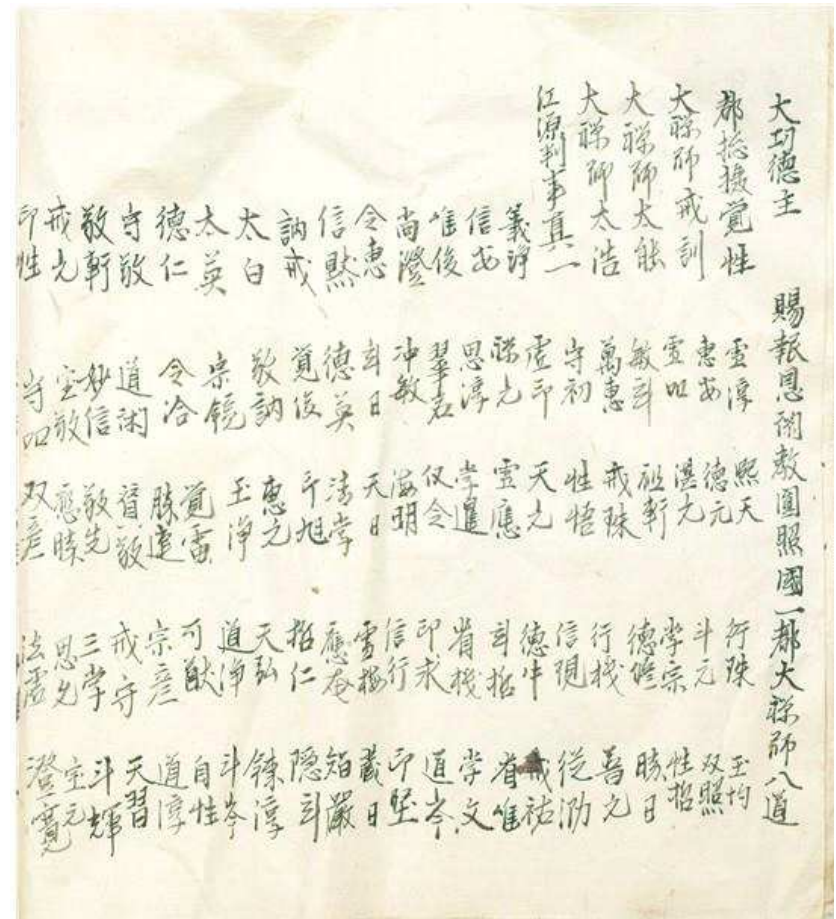 大功德主 賜報恩闡教圓照國一都大禅师八道
都捴攝覚性
大禅师戒訓
大禅师太能
大禅师太浩
江源判事真一
義諍
信安
唯俊
尚澄
令惠
信黙
訥戒
太白
太英
德仁
守敬
敬軒
戒元
印性
靈淳
惠安
靈印
敏斗
萬惠
守初
虚印
禅元
思淳
翠岩
冲敏
斗日
德英
覚俊
敬訥
宗镜
令洽
道闲
妙信
空敬
守印
熙天
德元
湛元
祖軒
戒珠
性悟
天元
靈應
学暹
仅令
海明
天日
法学
千旭
惠元
玉浄
覚雷
勝建
賛敬
敬先
應勝
双彦
行珠
斗元
学宗
德修
行機
信現
德牛
斗哲
省機
印求
信行
雪梅
應奄
哲仁
天弘
道浄
可猷
宗彦
戒守
三学
思允
法靈
玉均
双照
性哲
勝日
善元
從泐
戒祐
省唯
学文
道岑
印堅
藏日
智嚴
隠斗
錬淳
斗岑
自性
道淳
天習
斗輝
宝元
澄寛